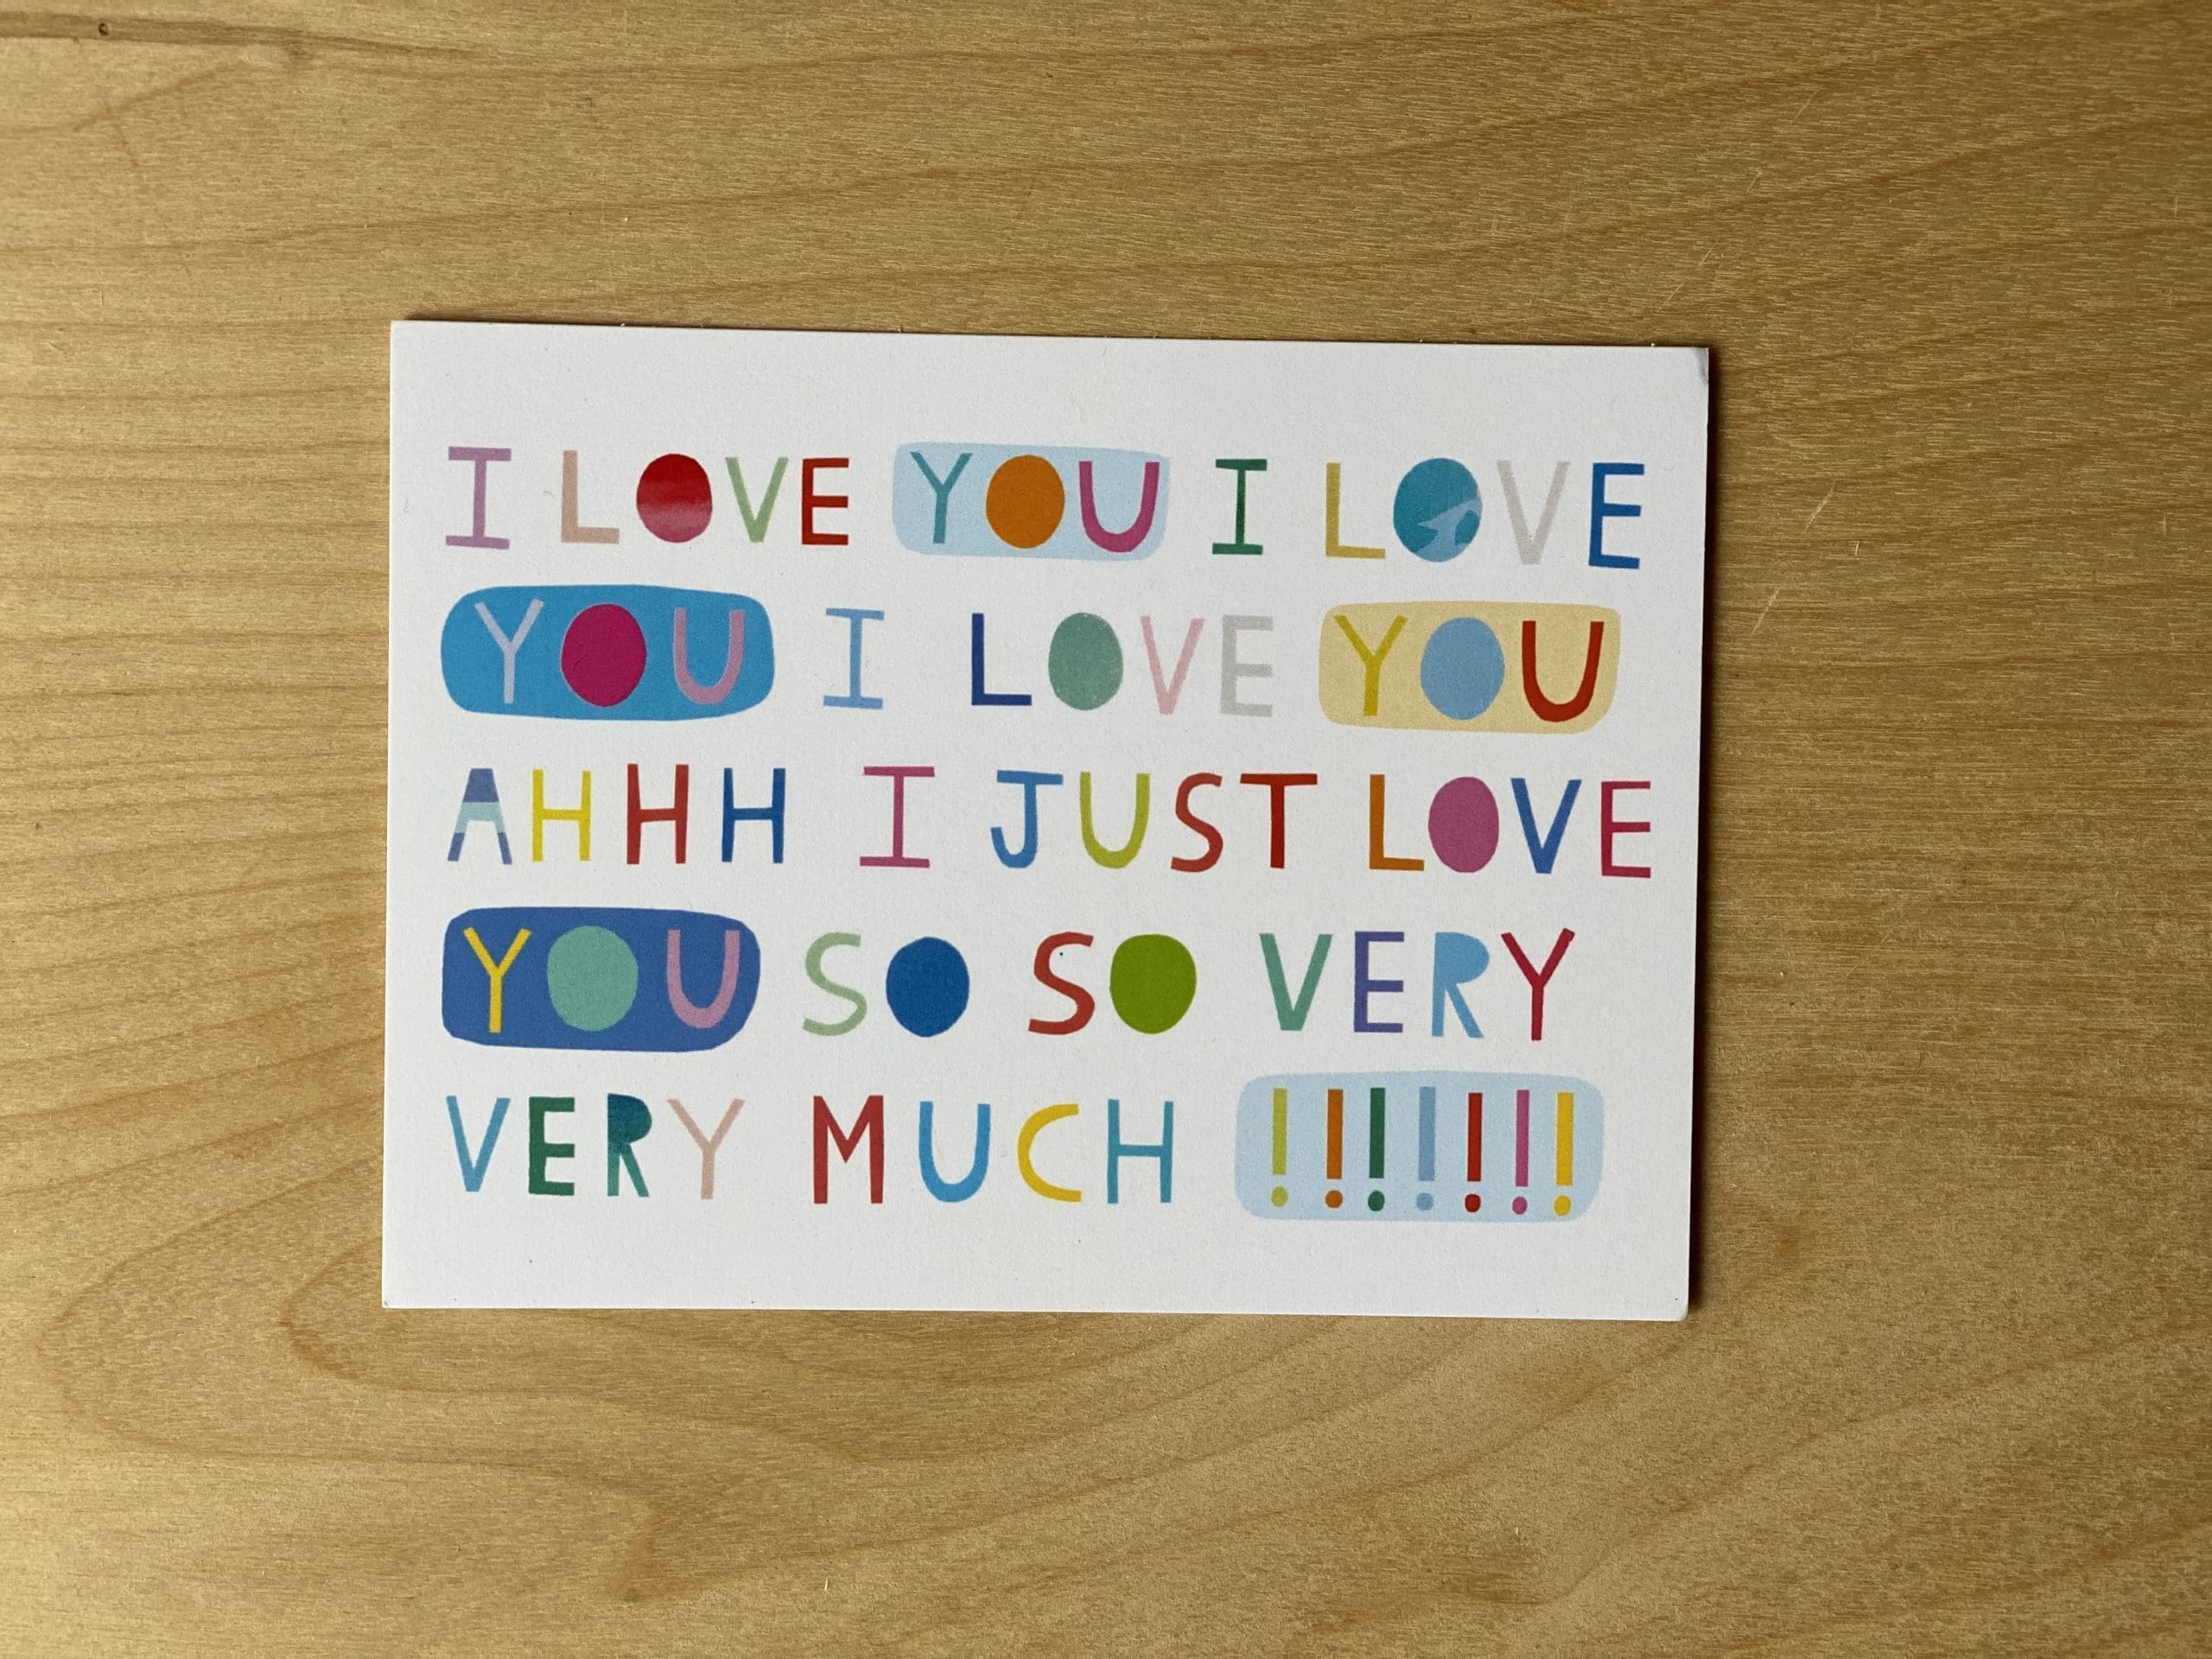 I LOVE YOU I LOVE
YOU I LOVE YOU
AHHH I JUST LOVE
YOU SO SO VERY
VERY MUCH !!!!!!!